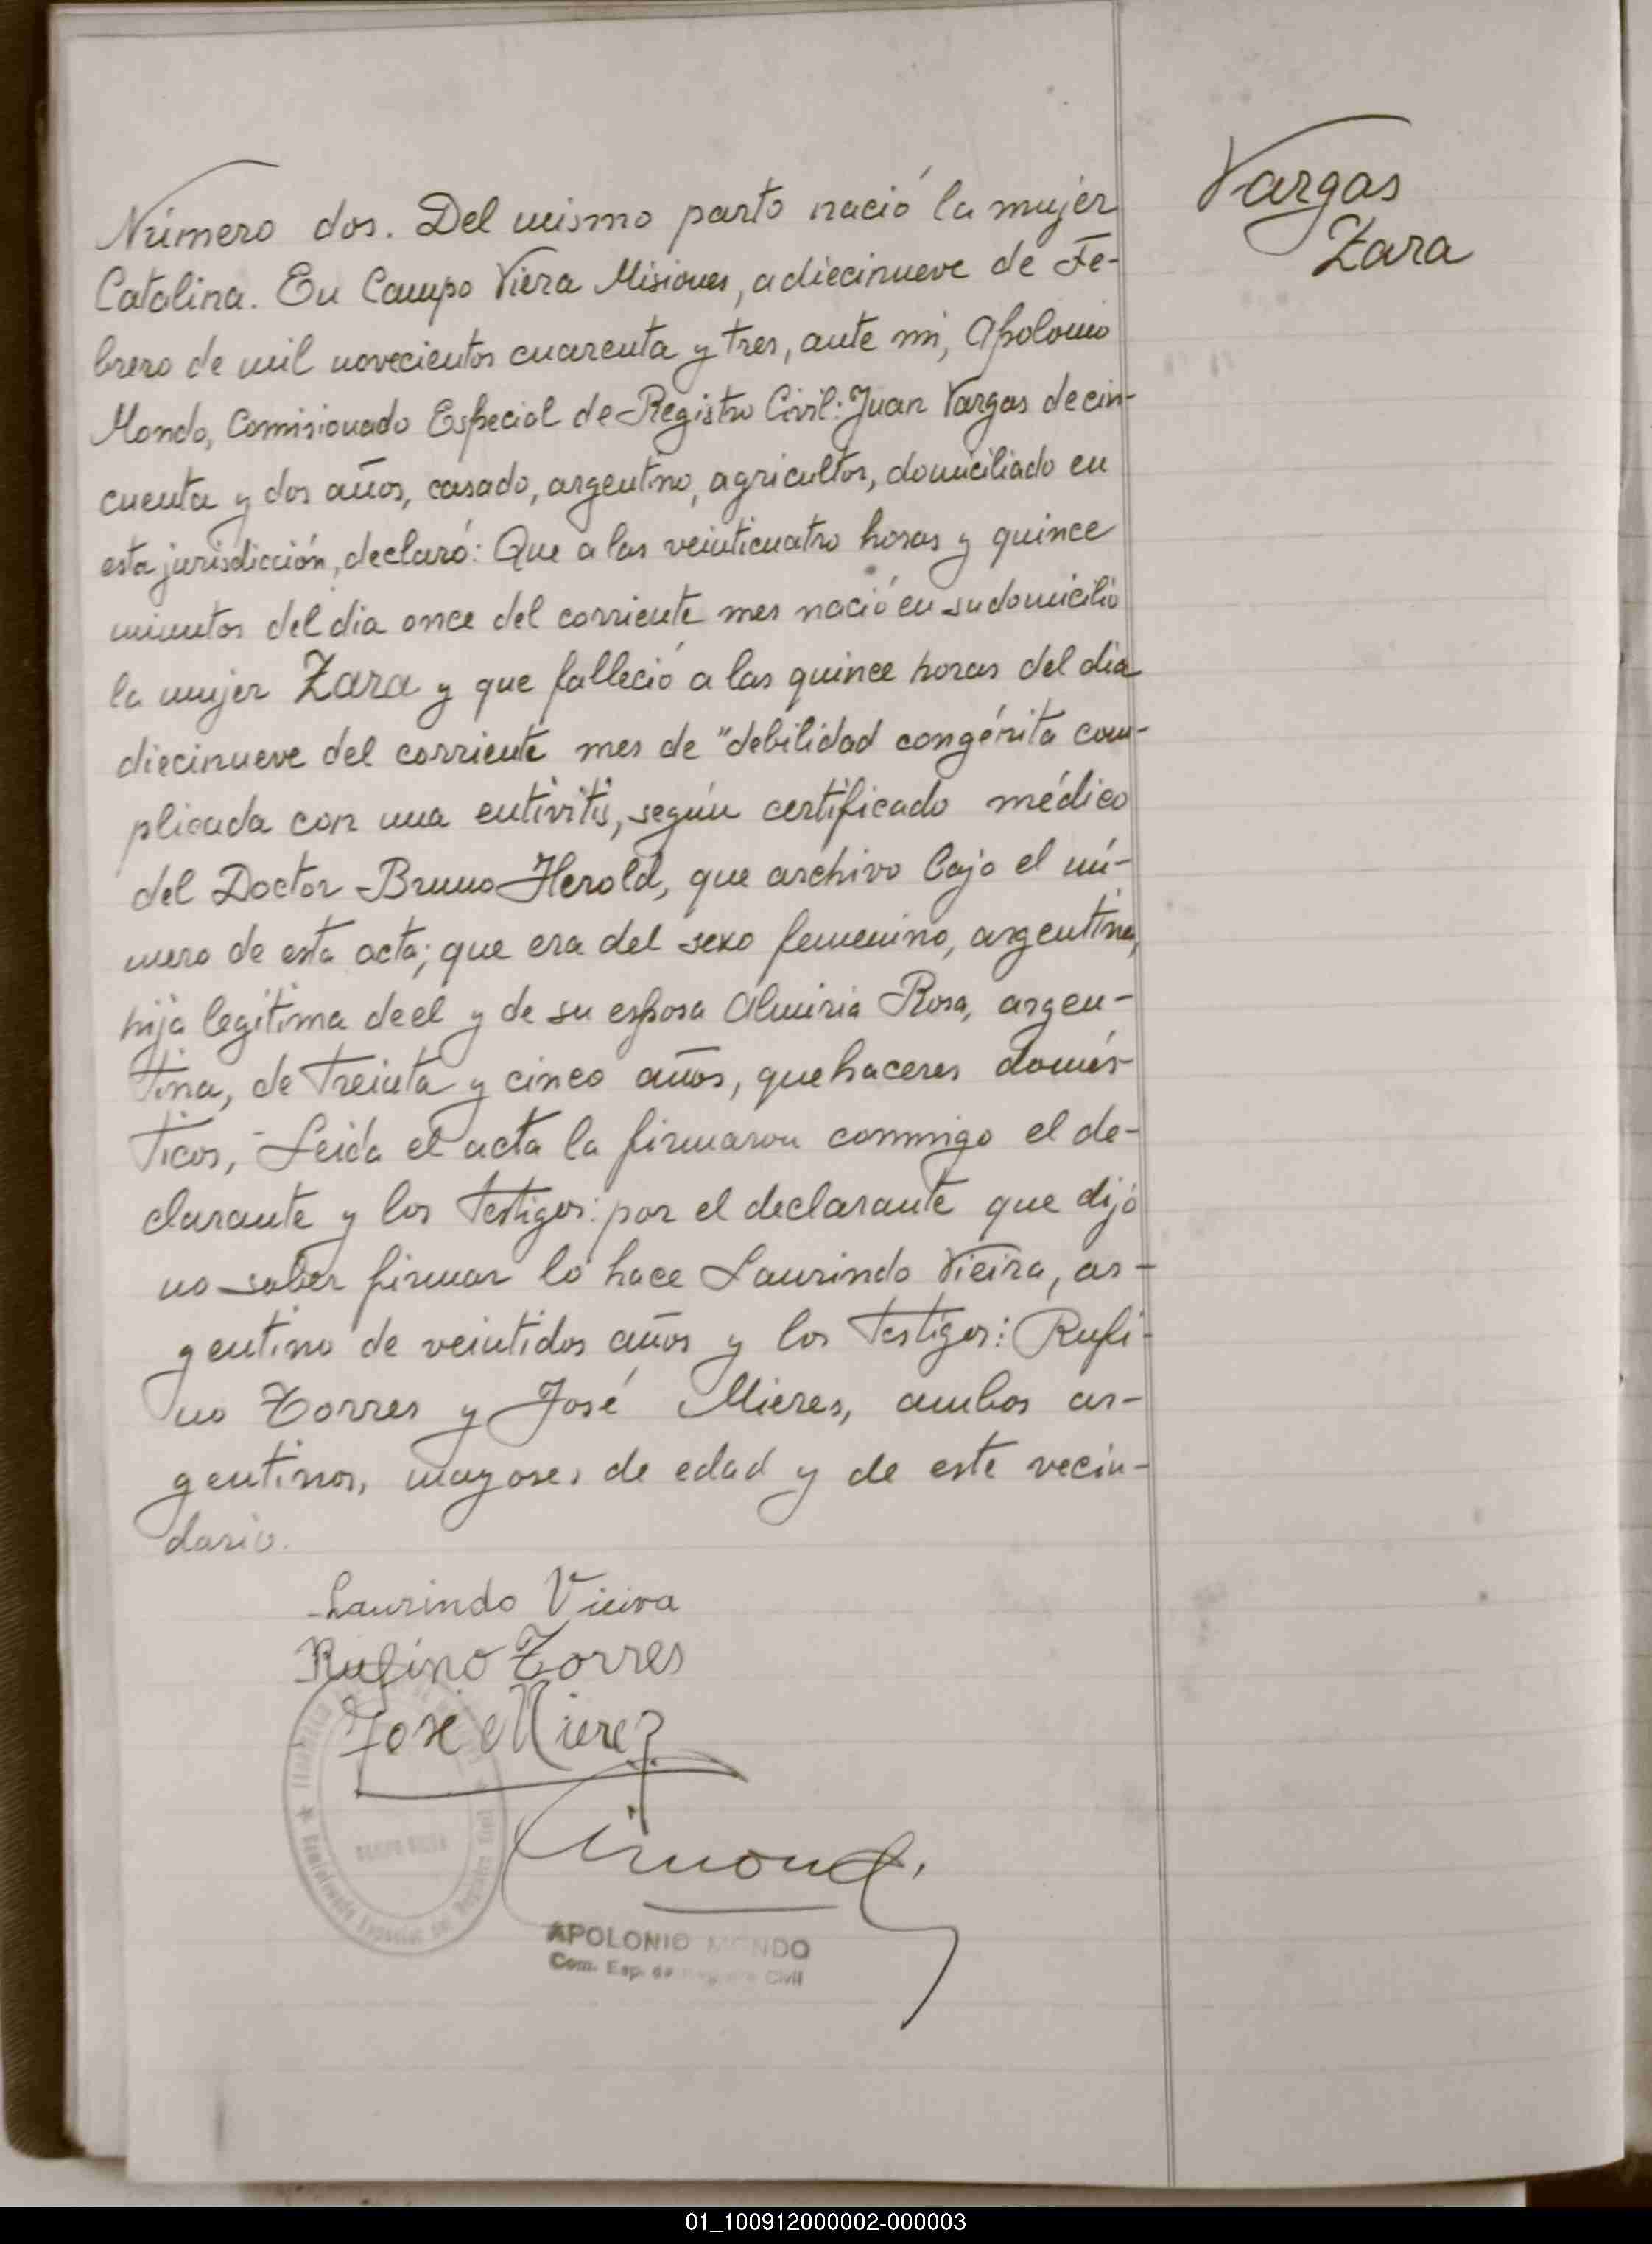 Vargas
Zara
Número dos. Del mismo parto nació la mujer
Catalina. En Campo Viera Misiones, a diecinueve de Fe-
brero de mil novecientos cuarenta y tres, ante mi, Apolonio
Mondo, Comisionado Especial de Registro Civil: Juan Vargas de cin-
cuenta y dos años, casado, argentino, agricultor, domiciliado en
esta jurisdicción, declaró: Que a las veinticuatro horas y quince
minutos del dia once del corriente mes nació en su domicilio
la mujer Zara y que falleció a las quince horas del dia
diecinueve del corriente mes de "debilidad congénita com-
plicada con una entivitis, según certificado médico
del Doctor Bruno Herold, que archivo bajo el nú-
mero de esta acta; que era del sexo femenino, argentina,
hija legitima de el y de su esposa Almiria Rosa, argen-
tina, de treinta y cinco años, quehaceres domés-
ticos, - Leida el acta la firmaron conmigo el de-
clarante y los testigos: por el declarante que dijo
no saber firmar lo hace Laurindo Vieira, ar-
gentino de veintidos años y los testigos: Rufi-
no Torres y José Mieres, ambos ar-
gentinos, mayores de edad y de este vecin-
dario.
Laurindo Vieira
Rufino Torres
Jose Mierez
APOLONIO MONDO
Com. Esp. de Registro Civil
01_100912000002-000003